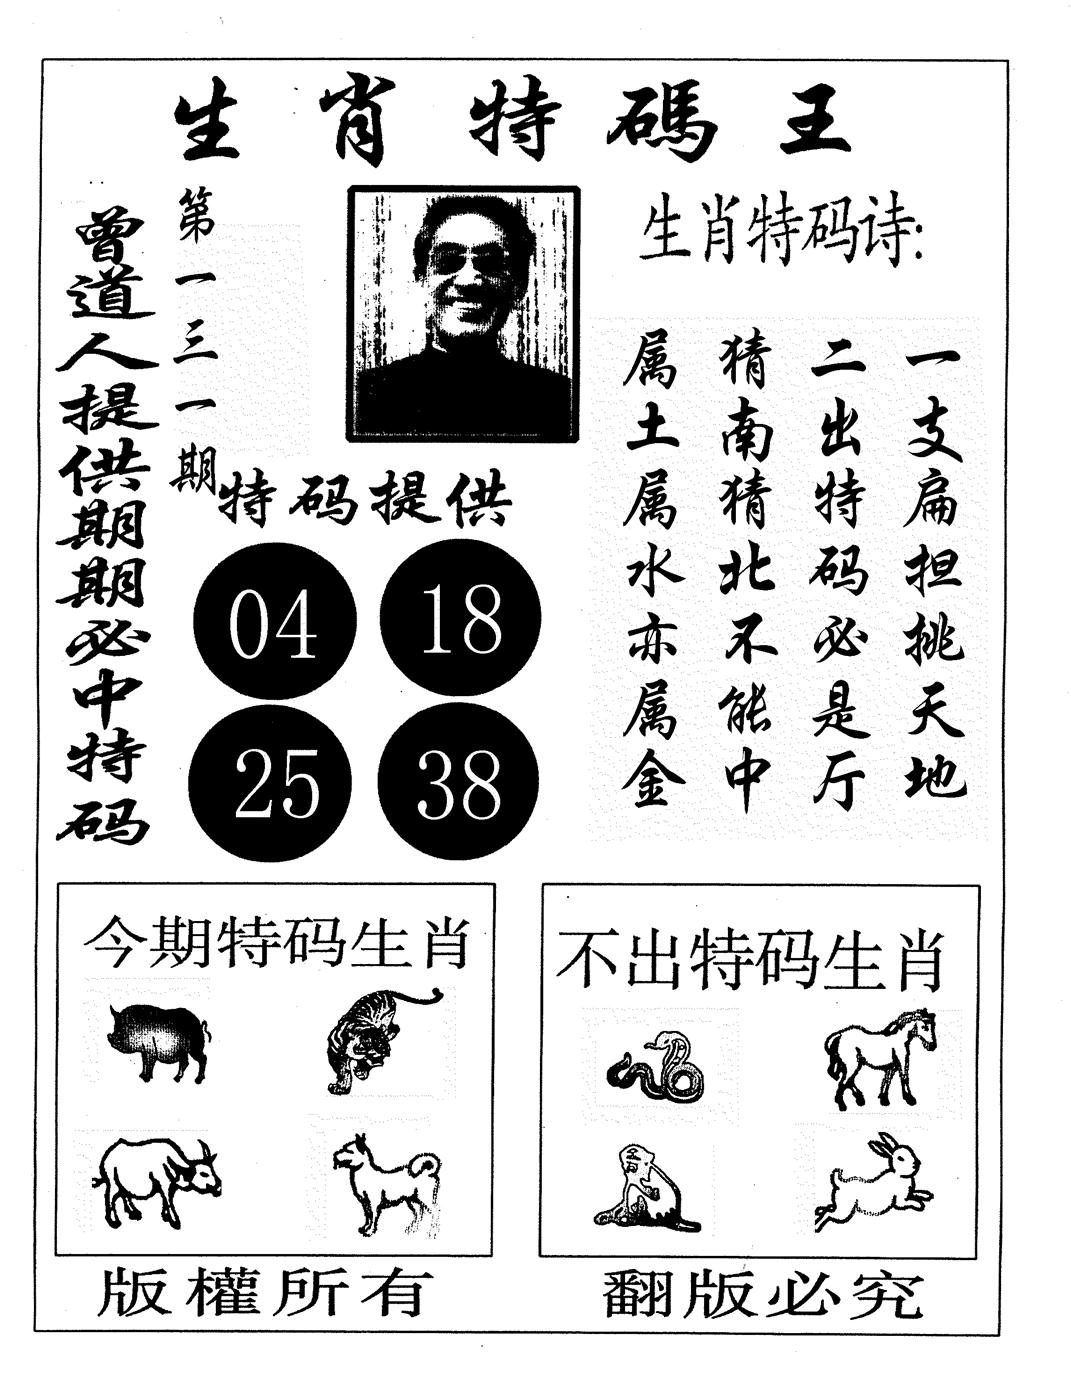 生肖特碼王
曾道人提供期期必中特码
第一三一期
生肖特码诗:
一支扁担挑天地
二出特码必是厅
猜南猜北不能中
属土属水亦属金
特码提供
04 18
25 38
今期特码生肖
不出特码生肖
版權所有
翻版必究